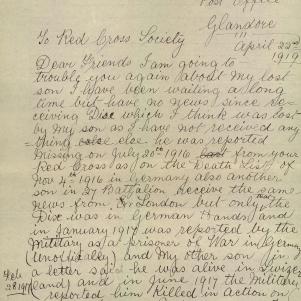 Post Office
Glandore
April 22nd
1919
To Red Cross Society
Dear Friends I am going to
trouble you again about My lost
son I have been waiting a long
time but have no news since re-
ceiving Disc which I think was lost
by my son as I have not received any
thing else he was reported
Missing on July 20th 1916 from your
Red Cross as on the death list of
Nov 4th 1916 in Germany also another
son in 27 Battalion Receive the same
news from London but only the
Disc was in German Hands and
in January 1917 was reported by the
Military as a prisoner of War in Germany
(Unofficially) and My other son in
Feb a letter said he was alive in Switzer
28 1917 land) and in June 1917 the Military
reported him Killed in action on